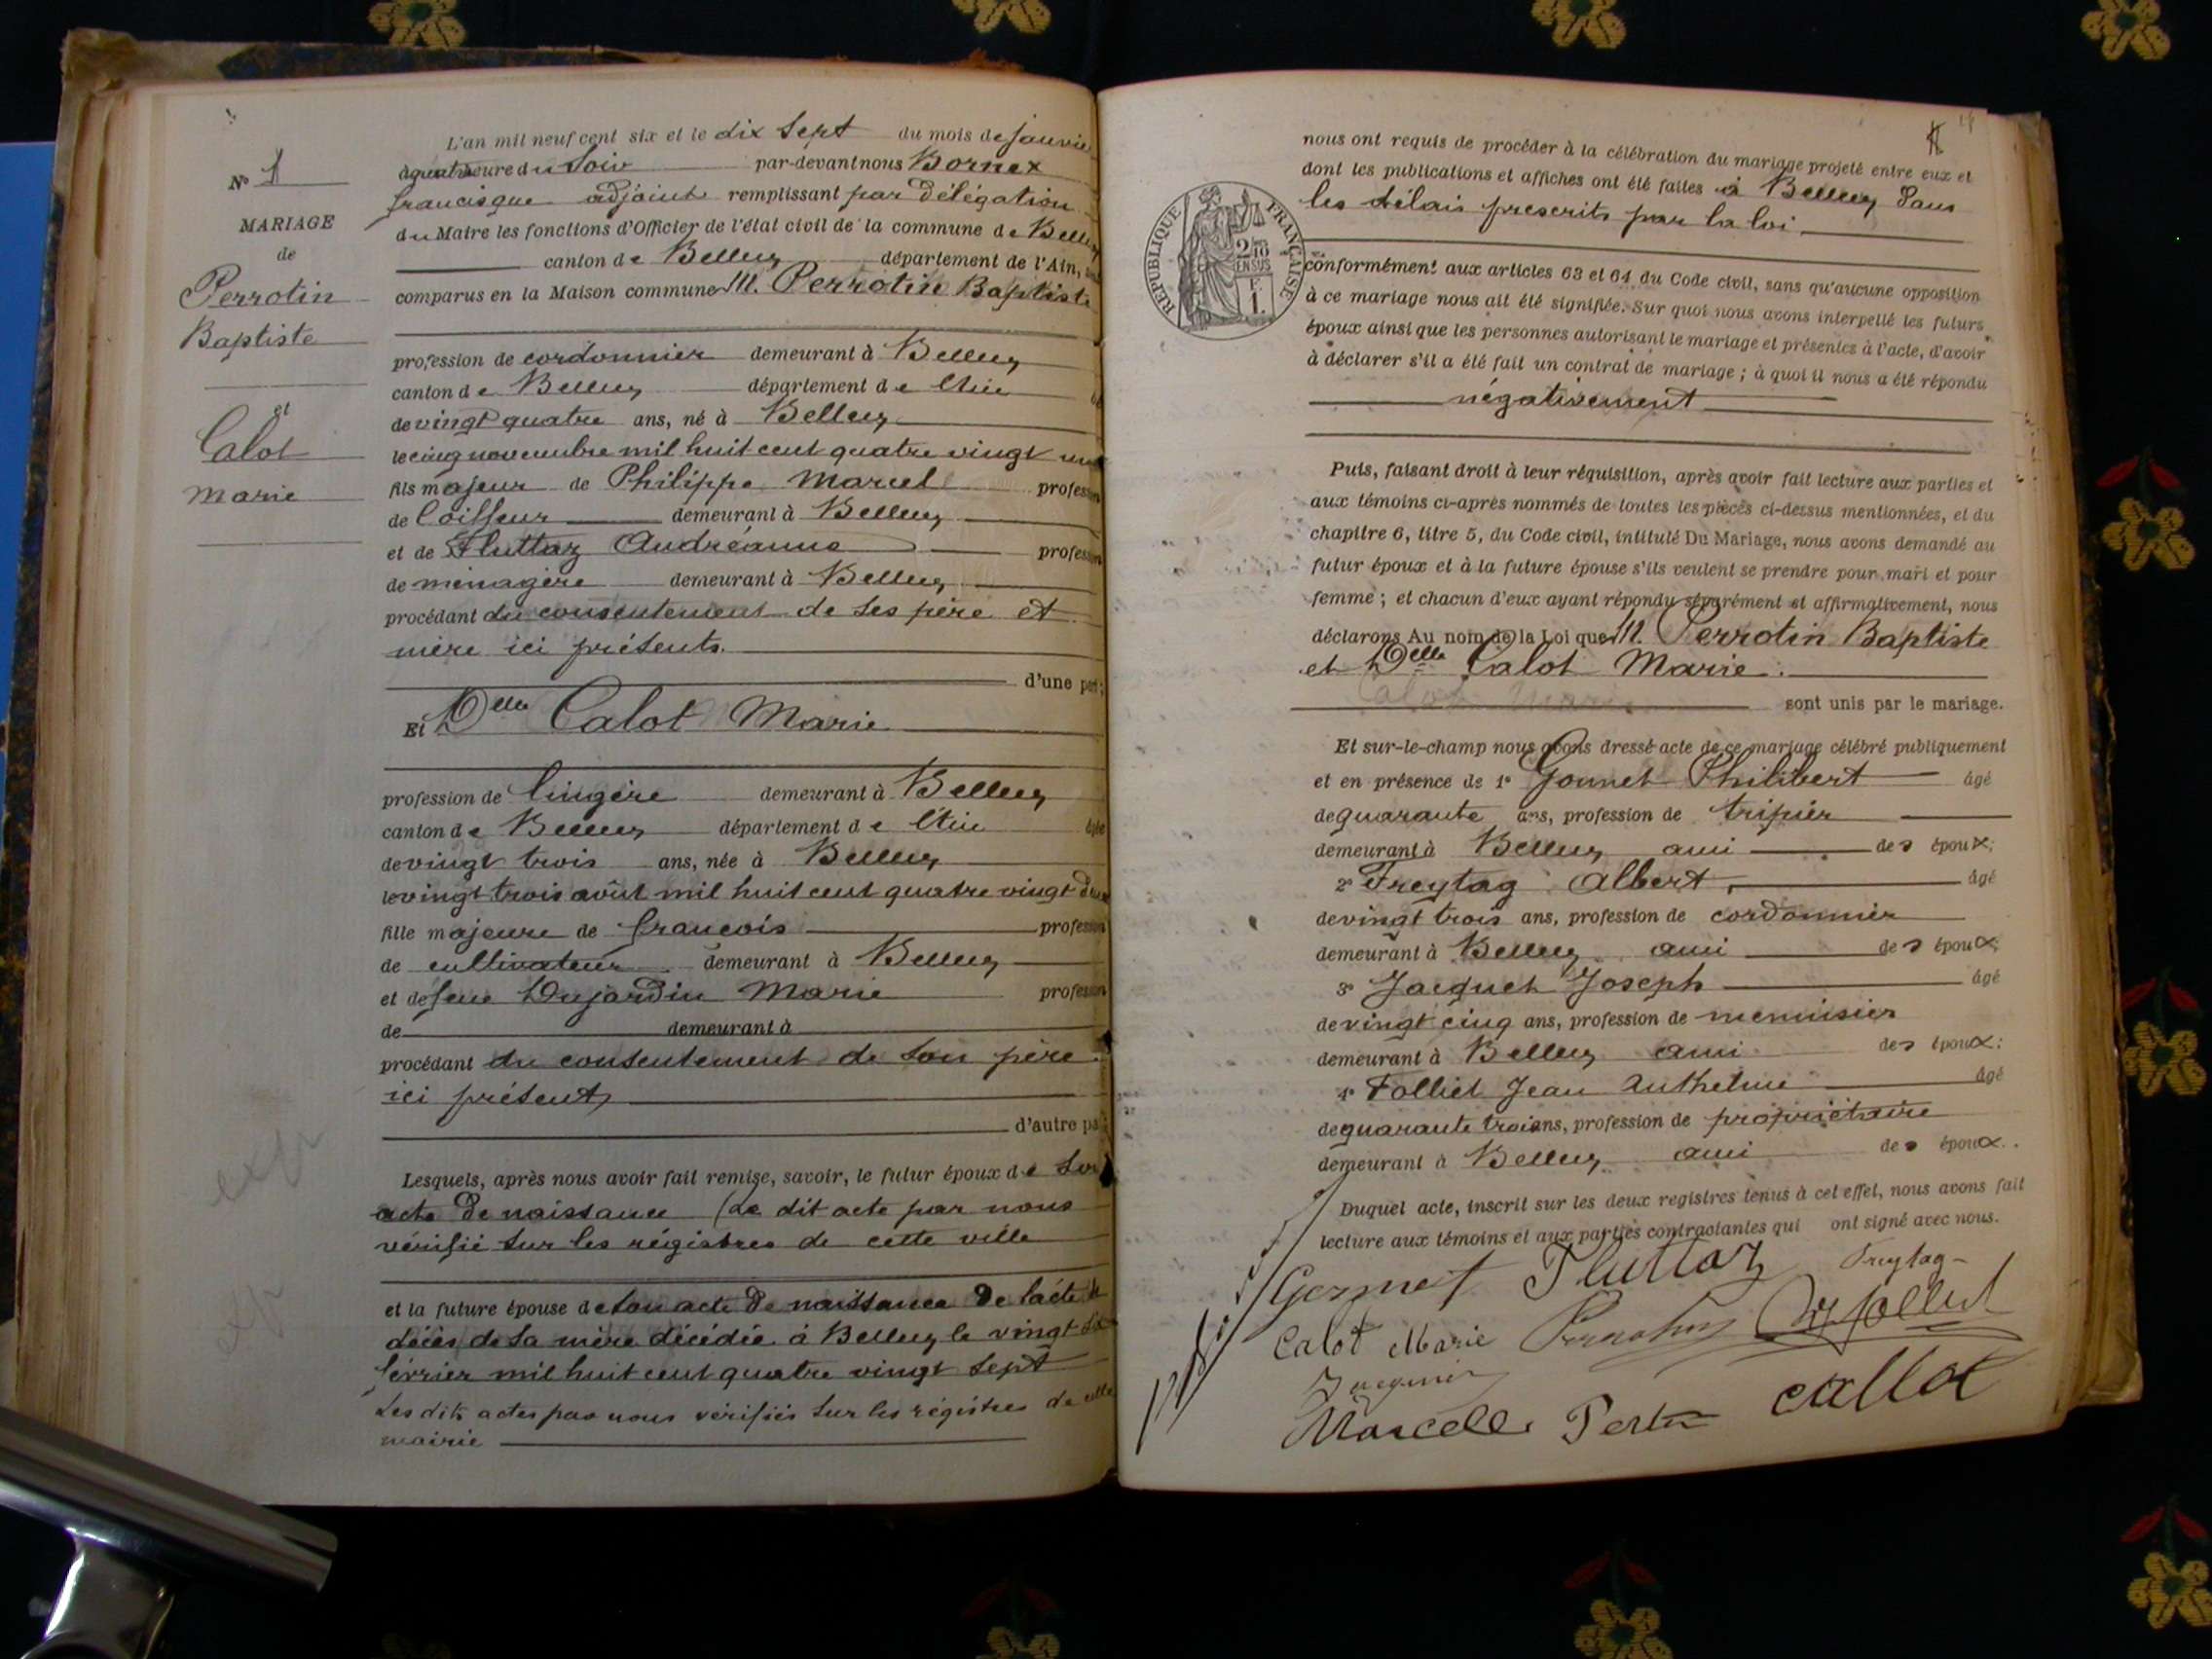 L'an mil neuf cent six et le dix sept du mois de janvie
à quatre heure du soir par-devant nous Bornex
N° 1
francisque adjoint remplissant par délégation
MARIAGE
du Maire les fonctions d'Officier de l'état civil de la commune de Belley
de
canton de Belley département de l'Ain,
Perrotin
comparus en la Maison commune M. Perrotin Baptiste
Baptiste
profession de cordonnier demeurant à Belley
canton de Belley département de l'Ain
et
de vingt quatre ans, né à Belley
Calot
le cinq novembre mil huit cent quatre vingt un
Marie
fils majeur de Philippe Marcel profession
de Coiffeur demeurant à Belley
et de Fluttaz Andréanne profession
de ménagère demeurant à Belley
procédant du consentement de ses père et
mère ici présents.
d'une part;
Et Delle Calot Marie
profession de lingère demeurant à Belley
canton de Belley département de l'Ain âgée
de vingt trois ans, née à Belley
le vingt trois août mil huit cent quatre vingt deux
fille majeure de francois profession
de cultivateur demeurant à Belley
et de feue Dujardin Marie profession
de demeurant à
procédant du consentement de son père
ici présent
d'autre pa
Lesquels, après nous avoir fait remise, savoir, le futur époux de son
acte de naissance (Le dit acte par nous
vérifié sur les régistres de cette ville
et la future épouse de son acte de naissance de l'acte de
décès de sa mère décédée à Belley le vingt
février mil huit cent quatre vingt sept
Les dits actes par nous vérifiés sur les régistres de cette
mairie
expr
nous ont requis de procéder à la célébration du mariage projeté entre eux et
dont les publications et affiches ont été faites à Belley dans
les délais prescrits par la loi
REPUBLIQUE FRANÇAISE
2/10 EN SUS
F.
1.
conformément aux articles 63 et 64 du Code civil, sans qu'aucune opposition
à ce mariage nous ait été signifiée. Sur quoi nous avons interpellé les futurs
époux ainsi que les personnes autorisant le mariage et présentes à l'acte, d'avoir
à déclarer s'il a été fait un contrat de mariage ; à quoi il nous a été répondu
négativement
Puis, faisant droit à leur réquisition, après avoir fait lecture aux parties et
aux témoins ci-après nommés de toutes les pièces ci-dessus mentionnées, et du
chapitre 6, titre 5, du Code civil, intitulé Du Mariage, nous avons demandé au
futur époux et à la future épouse s'ils veulent se prendre pour mari et pour
femme ; et chacun d'eux ayant répondu séparément et affirmativement, nous
déclarons Au nom de la Loi que M. Perrotin Baptiste
et Delle Calot Marie.
Calot Marie
sont unis par le mariage.
Et sur-le-champ nous avons dressé acte de ce mariage célébré publiquement
et en présence de 1° Gonnet Philibert âgé
de quarante ans, profession de tripier
demeurant à Belley ami des époux;
2° Freytag Albert, âgé
de vingt trois ans, profession de cordonnier
demeurant à Belley ami des époux;
3° Jacquet Joseph âgé
de vingt cinq ans, profession de menuisier
demeurant à Belley ami des époux;
4° Folliet Jean Anthelme âgé
de quarante trois ans, profession de propriétaire
demeurant à Belley ami des époux.
Duquel acte, inscrit sur les deux registres tenus à cet effet, nous avons fait
lecture aux témoins et aux parties contractantes qui ont signé avec nous.
Fluttaz Freytag
Calot Marie Perrotin
Marcelle callot